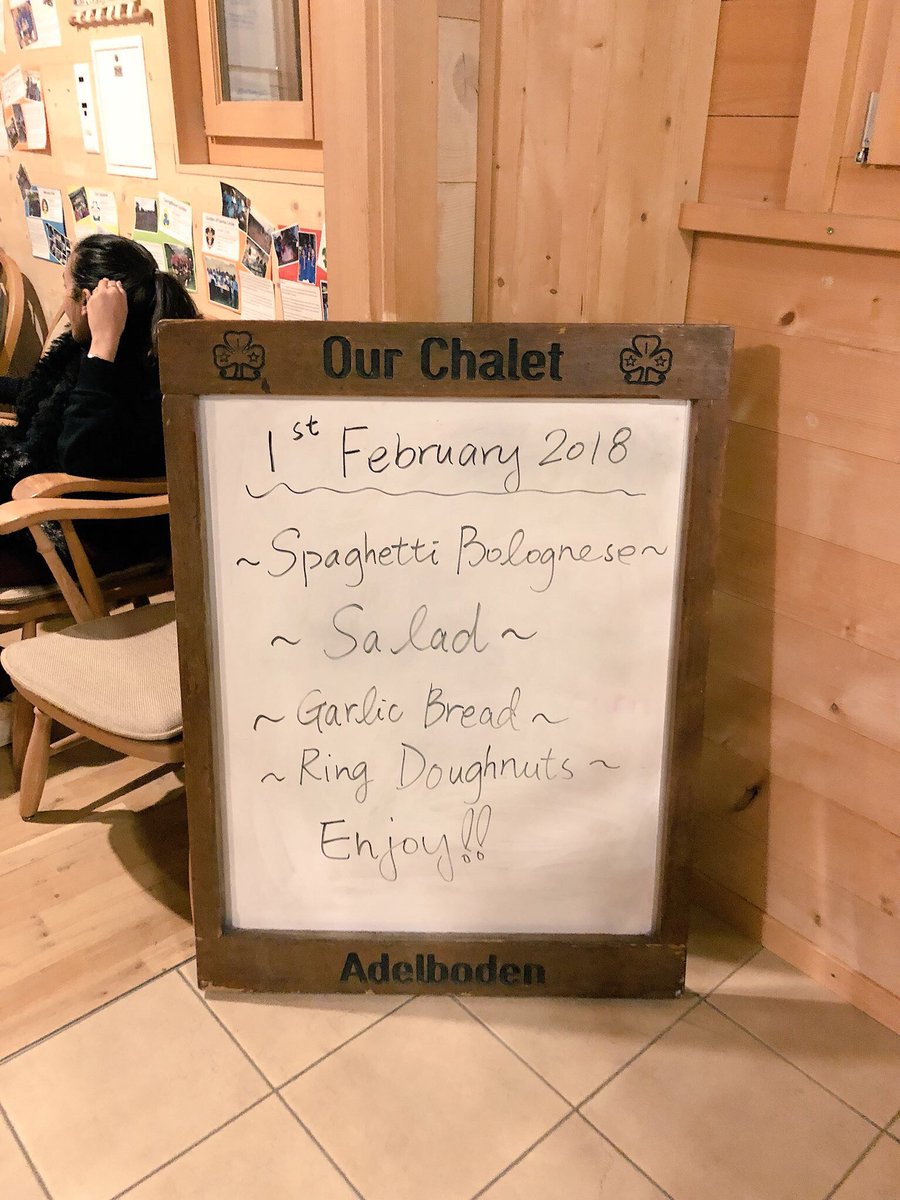 Our Chalet
1st February 2018
~Spaghetti Bolognese~
~ Salad ~
~ Garlic Bread ~
~ Ring Doughnuts ~
Enjoy!!
Adelboden